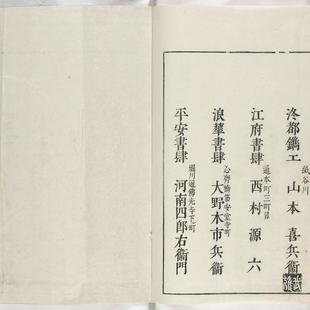 洛都鐫工 山本喜兵衞
通本町三町目
江府書肆 西村源六
心齊橋筋安堂寺町
浪華書肆 大野木市兵衞
堀川通佛光寺下町
平安書肆 河南四郎右衞門